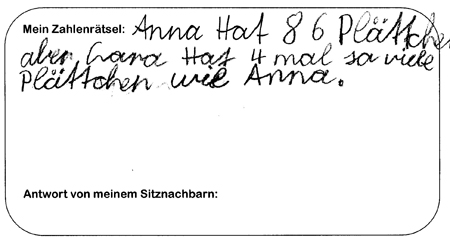 Mein Zahlenrätsel: Anna Hat 86 Plättchen
aber Lara Hat 4 mal so viele
Plättchen wie Anna.
Antwort von meinem Sitznachbarn: